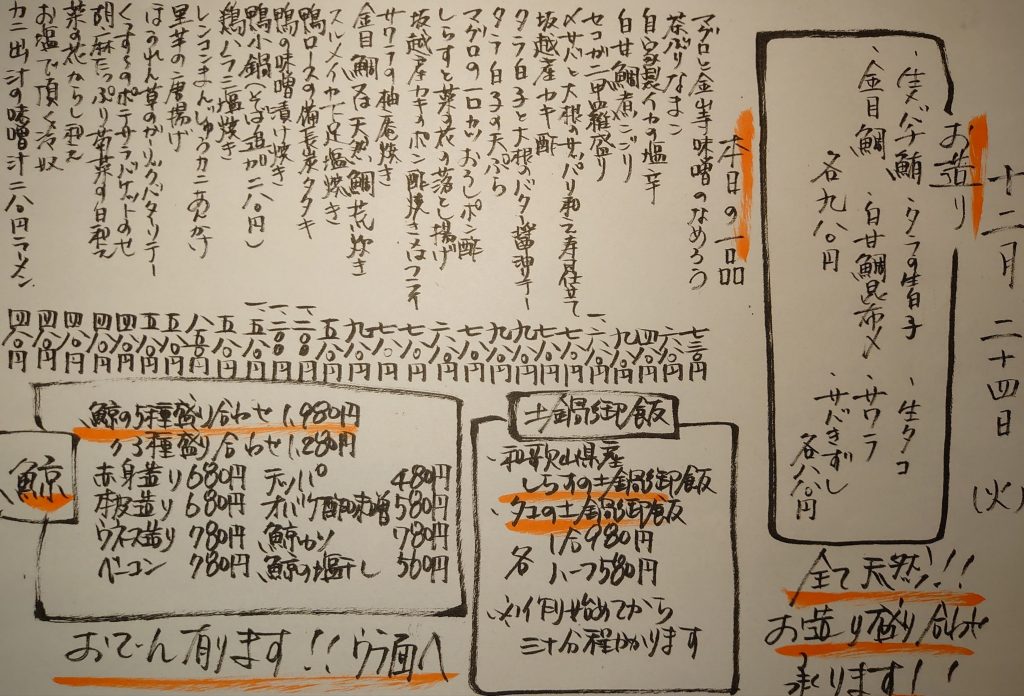 十二月 二十四日 (火)
お造り
・生バチ鮪 ・タラの生白子 ・生タコ
・金目鯛 ・白甘鯛昆布〆 ・サワラ
各九八〇円
・サバきずし
各八八〇円
全て天然!!
お造り盛り合わせ
承ります!!
本日の一品
マグロと金山寺味噌のなめろう 七三〇円
茶ぶりなまこ 六八〇円
自家製イカの塩辛 四八〇円
白甘鯛煮こごり
セコガニ甲羅盛り
〆サバと大根のサッパリ和え寿司仕立て
坂越産カキ酢
タラ白子と大根のバター醤油ソテー
タラ白子の天ぷら
マグロの一口カツおろしポン酢
しらすと菜の花の落とし揚げ
坂越産カキのポン酢焼き又はフライ
サワラの柚庵焼き
金目鯛又は天然鯛荒炊き
スルメイカ下足塩焼き
鴨ロースの備長炭タタキ
鴨の味噌漬け焼き
鴨小鍋(そば追加二八〇円)
鶏ハラミ塩焼き
レンコンまんじゅうカニあんかけ
里芋の唐揚げ
ほうれん草のガーリックバターソテー
くんすーのポテサラバケットのせ
胡麻たっぷり菊菜の白和え 四八〇円
菜の花からし和え 四八〇円
お塩で頂く冷奴 四八〇円
カニ出汁の味噌汁 二八〇円 ラーメン 四八〇円
土鍋御飯
・和歌山県産
しらすの土鍋御飯
・タコの土鍋御飯
各 1合980円
ハーフ580円
※作り始めてから
三十分程かかります
鯨
鯨の5種盛り合わせ 1,980円
〃3種盛り合わせ 1,280円
赤身造り 680円 テッパ 480円
本皮造り 680円 オバケ酢味噌 580円
ウネス造り 780円 鯨カツ 780円
ベーコン 780円 鯨の塩干し 560円
おでん有ります!! ウラ面へ